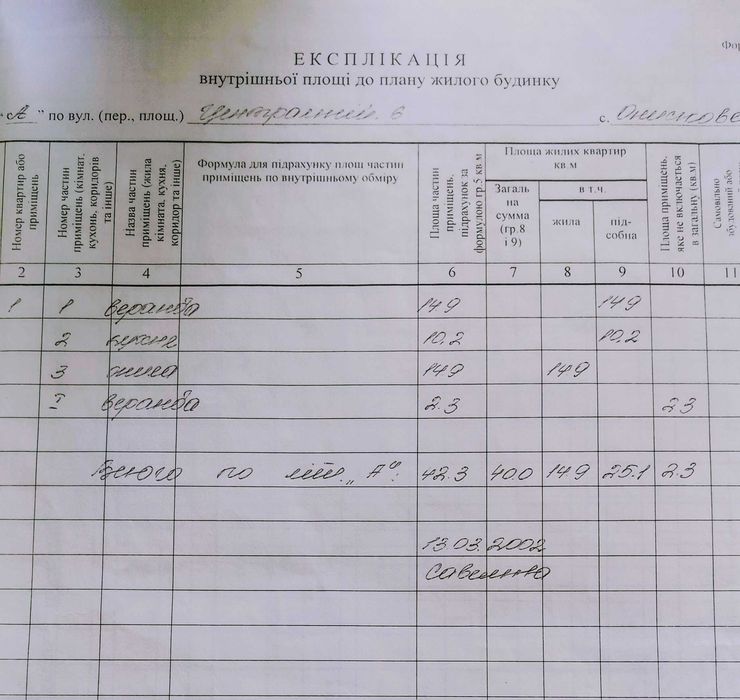 Фор
ЕКСПЛІКАЦІЯ
внутрішньої площі до плану жилого будинку
"А" по вул. (пер., площ.) Центральній 6 с.
Номер квартир або приміщень
Номер частин приміщень (кімнат. кухонь, коридорів та інше)
Назва частин приміщень (жила кімната, кухня, коридор та інше)
Формула для підрахунку площ частин приміщень по внутрішньому обміру
Площа частин приміщень, підрахунок за формулою гр.5 кв м
Площа жилих квартир кв.м
Загаль на сумма (гр.8 і 9)
в т.ч.
жила
під- собна
Площа приміщень, яке не включається в загальну (кв.м)
Самовільно збудований або
2 3 4 5 6 7 8 9 10 11
1 1 веранда 14.9 14.9
2 кухня 10.2 10.2
3 жила 14.9 14.9
I веранда 2.3 2.3
Всього по літ. „А": 42.3 40.0 14.9 25.1 2.3
13.03.2002